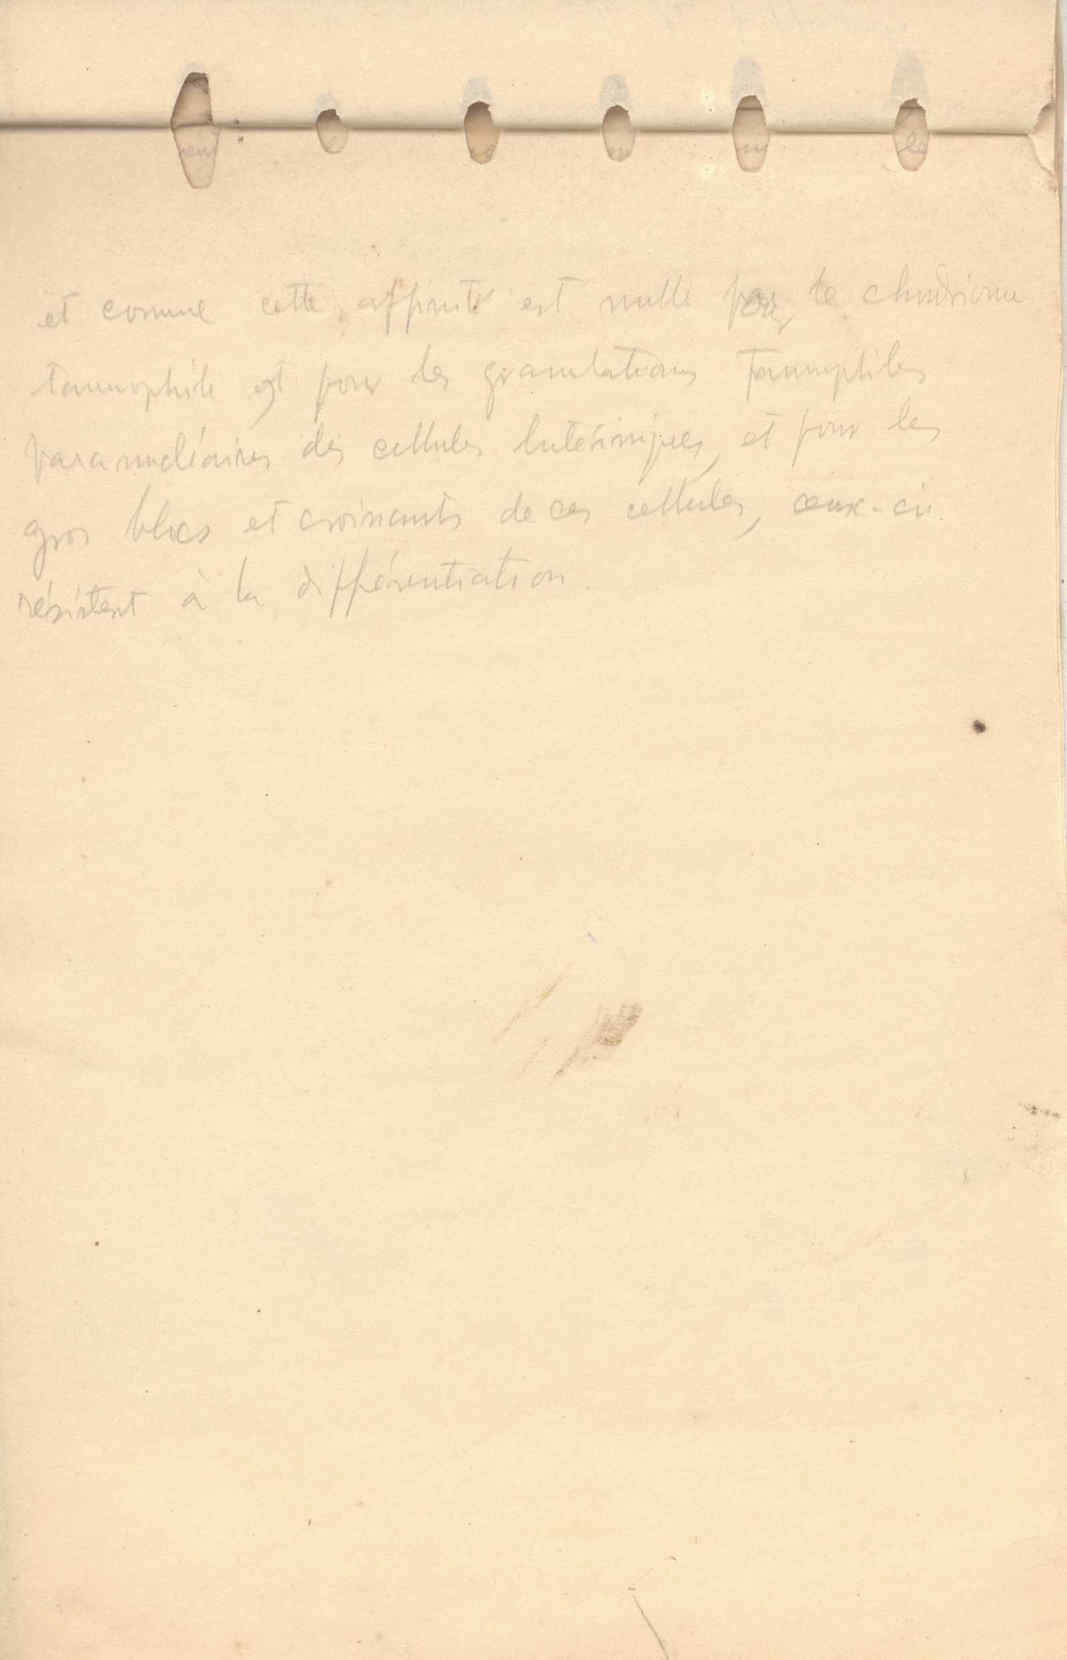 et comme cette affinité est nulle pour le chondriome
tannophile et pour les granulations tannophiles
paranucléaires des cellules lutéiniques, et pour les
gros blocs et croissants de ces cellules, ceux-ci
résistent à la différentiation.